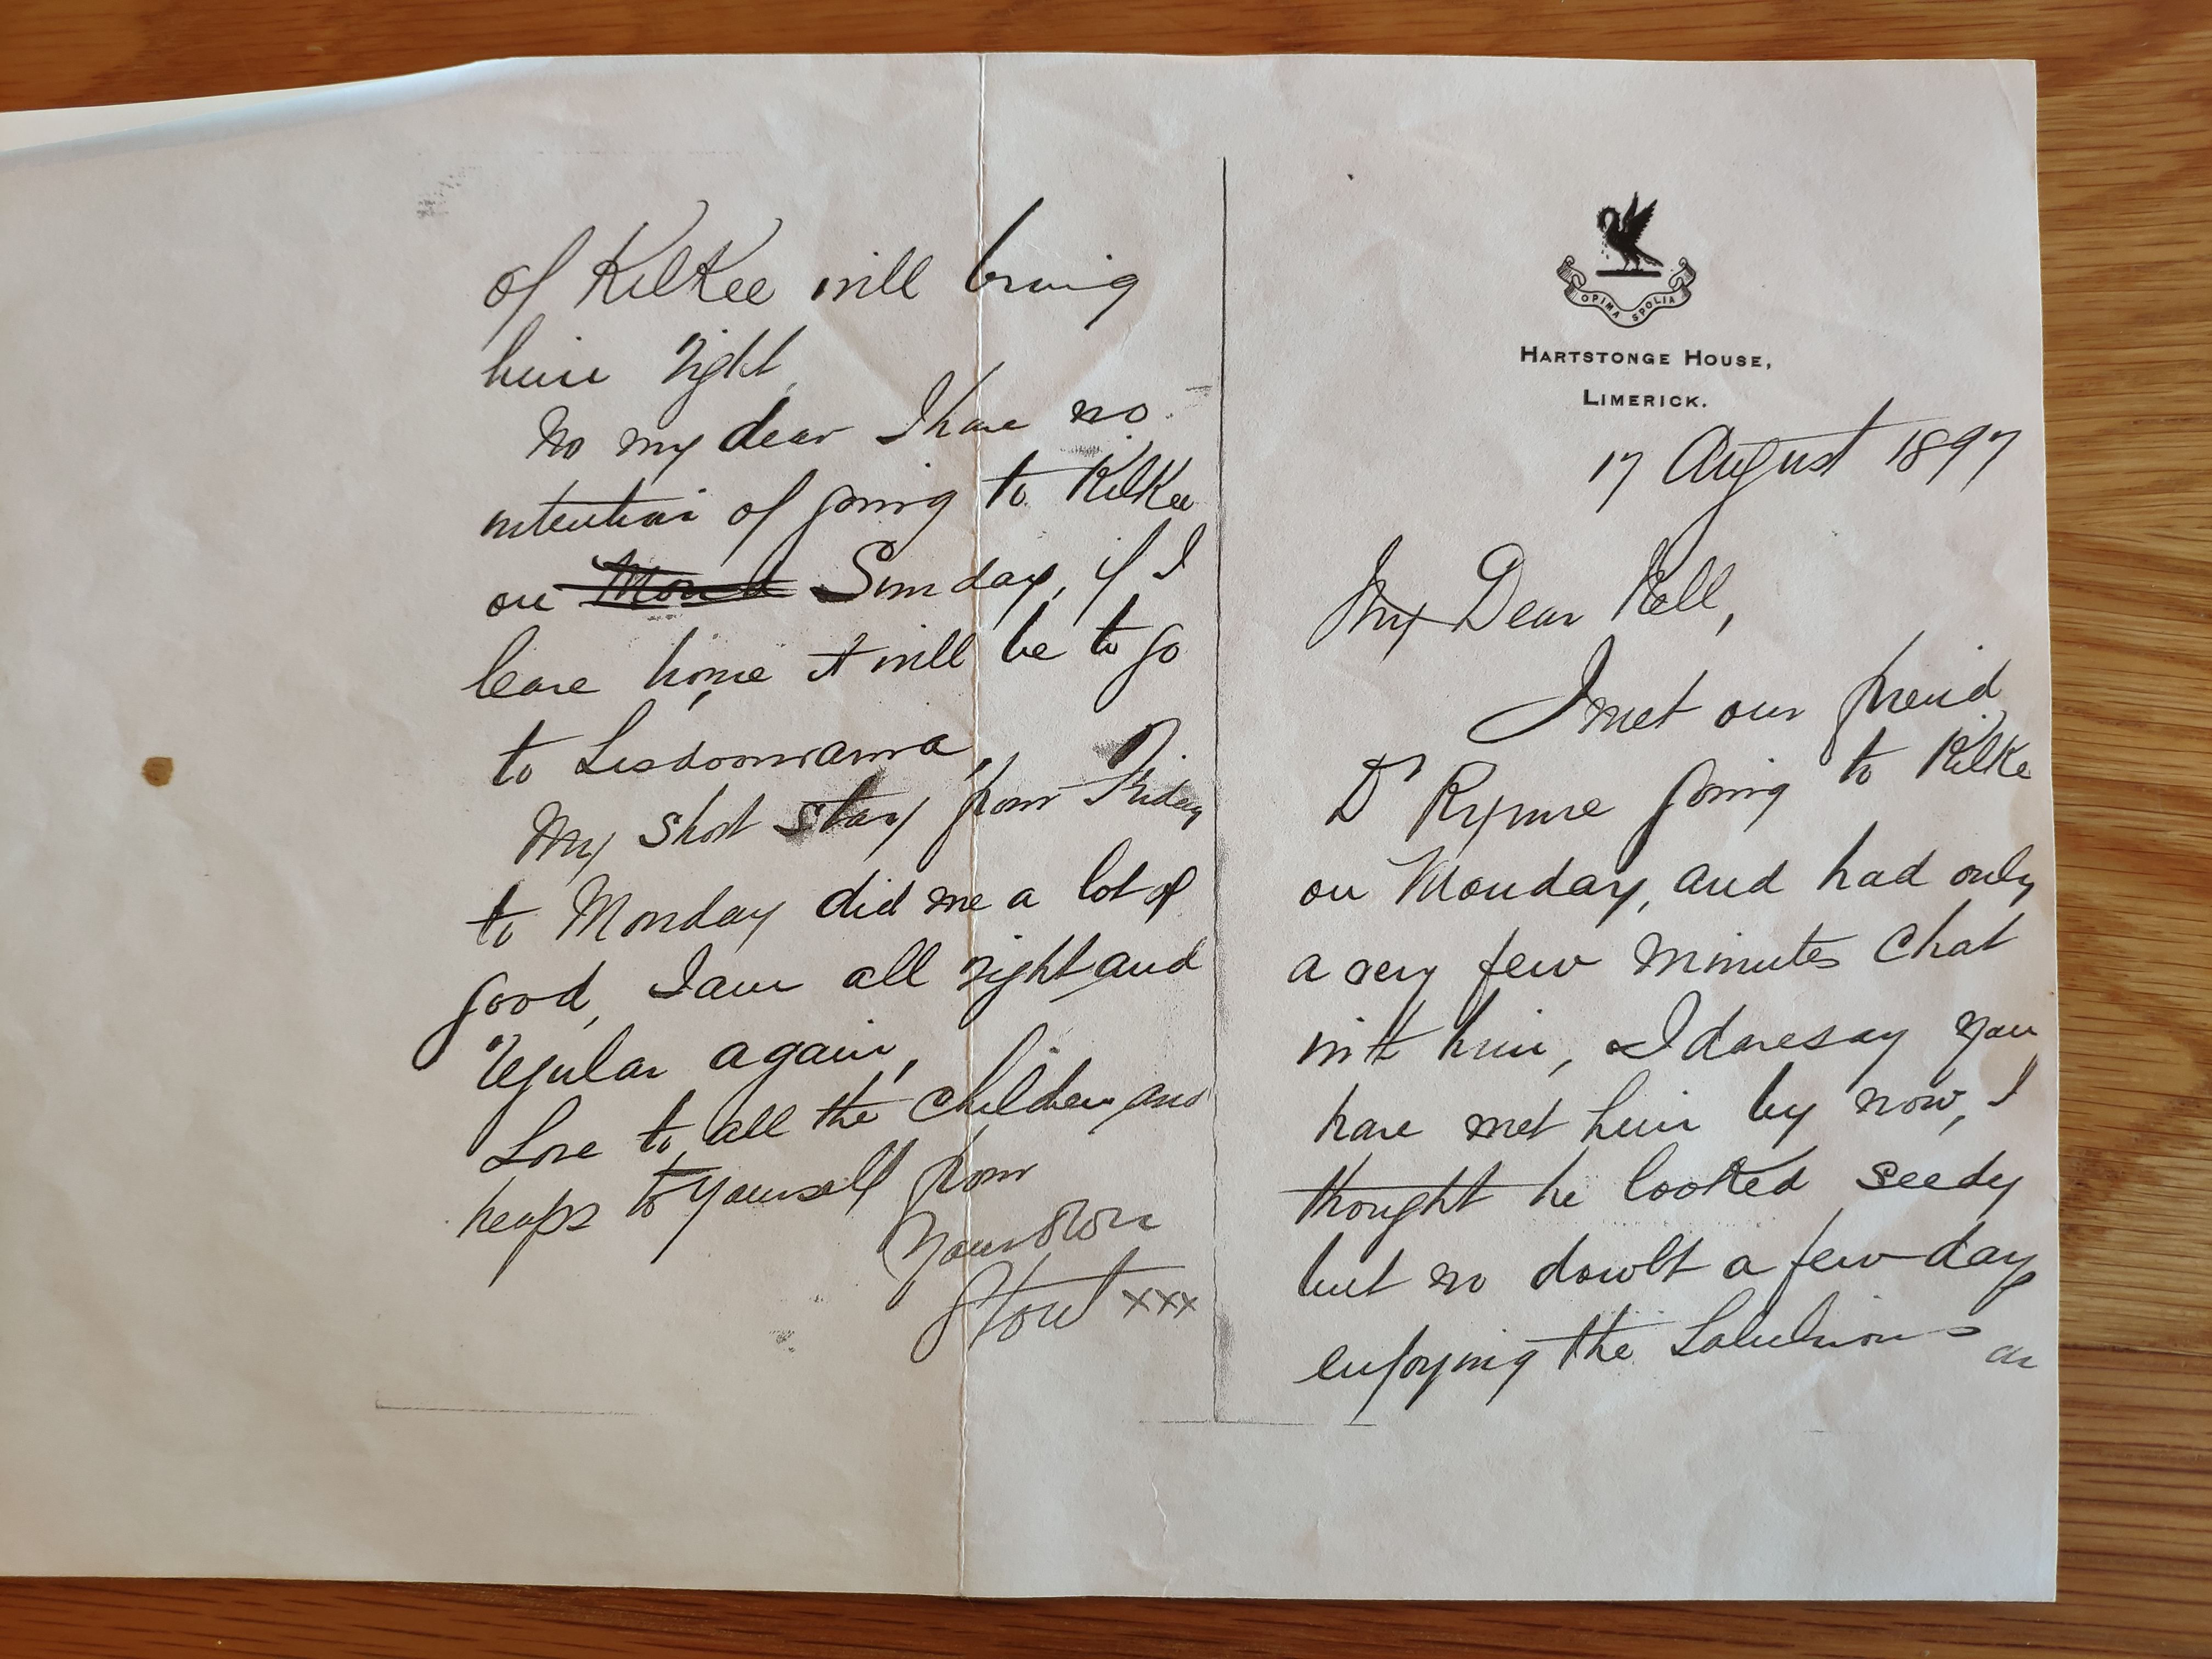 OPIMA SPOLIA
HARTSTONGE HOUSE,
LIMERICK.
17 August 1897
My Dear Nell,
I met our friend
Dr Rynne going to Kilke
on Monday, and had only
a very few minutes chat
with him, I daresay you
have met him by now, I
thought he looked seedy
but no doubt a few day
enjoying the salubrious air
of Kilkee will bring
him right,
No my dear I have no
intention of going to Kilkee
on Mond Sunday, if I
leave home it will be to go
to Lisdoonvarna,
My short stay from Friday
to Monday did me a lot of
good, I am all right and
regular again,
Love to all the children and
heaps to yourself from
Your own
Stout xxx